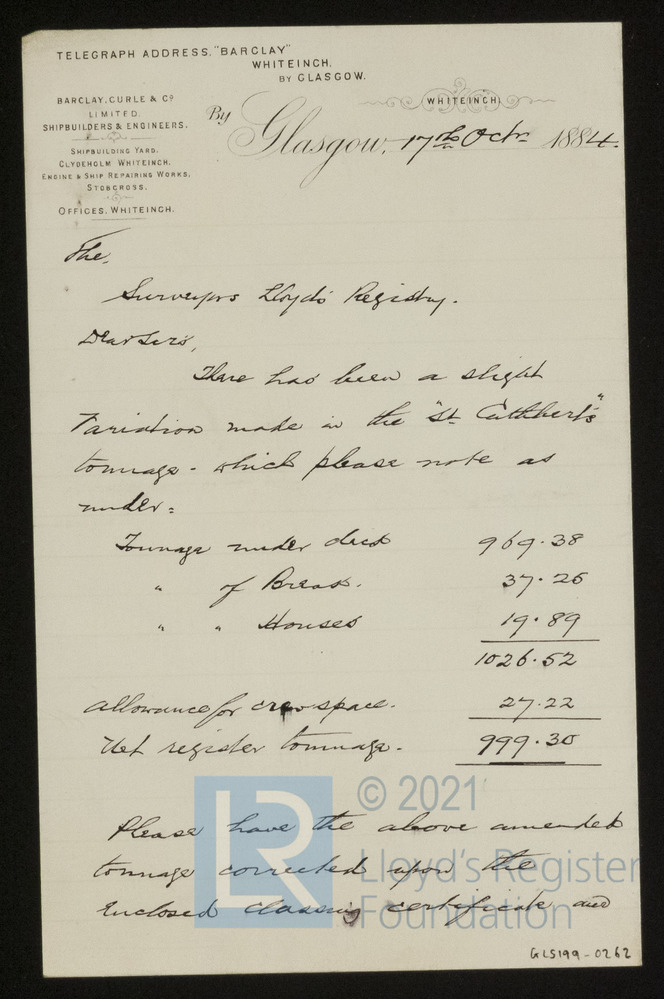 TELEGRAPH ADDRESS, "BARCLAY"
WHITEINCH.
BY GLASGOW.
BARCLAY, CURLE & Co
LIMITED.
SHIPBUILDERS & ENGINEERS.
SHIPBUILDING YARD.
CLYDEHOLM WHITEINCH.
ENGINE & SHIP REPAIRING WORKS.
STOBCROSS.
OFFICES, WHITEINCH.
WHITEINCH,
By Glasgow, 17th Octr 1884.
The,
Surveyors Lloyds Registry.
Dear Sirs,
There has been a slight
Variation made in the "St Cuthbert's"
tonnage - which please note as
under =
Tonnage under deck 969.38
" of Break. 37.25
" " Houses 19.89
1026.52
Allowance for crew space. 27.22
Net register tonnage. 999.30
Please have the above amended
tonnage corrected upon the
Enclosed classing certificate and
LR
© 2021
Lloyd's Register
Foundation
GLS199-0262